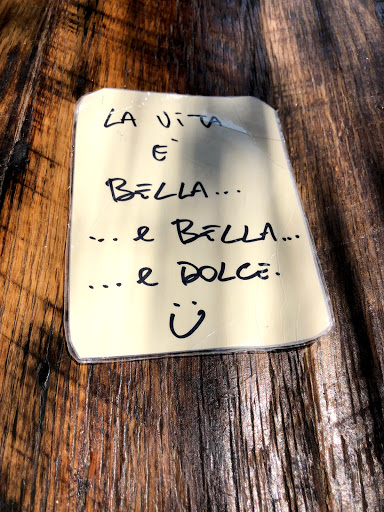 LA ViTA
E'
BELLA...
... e BELLA...
... e DOLCE.